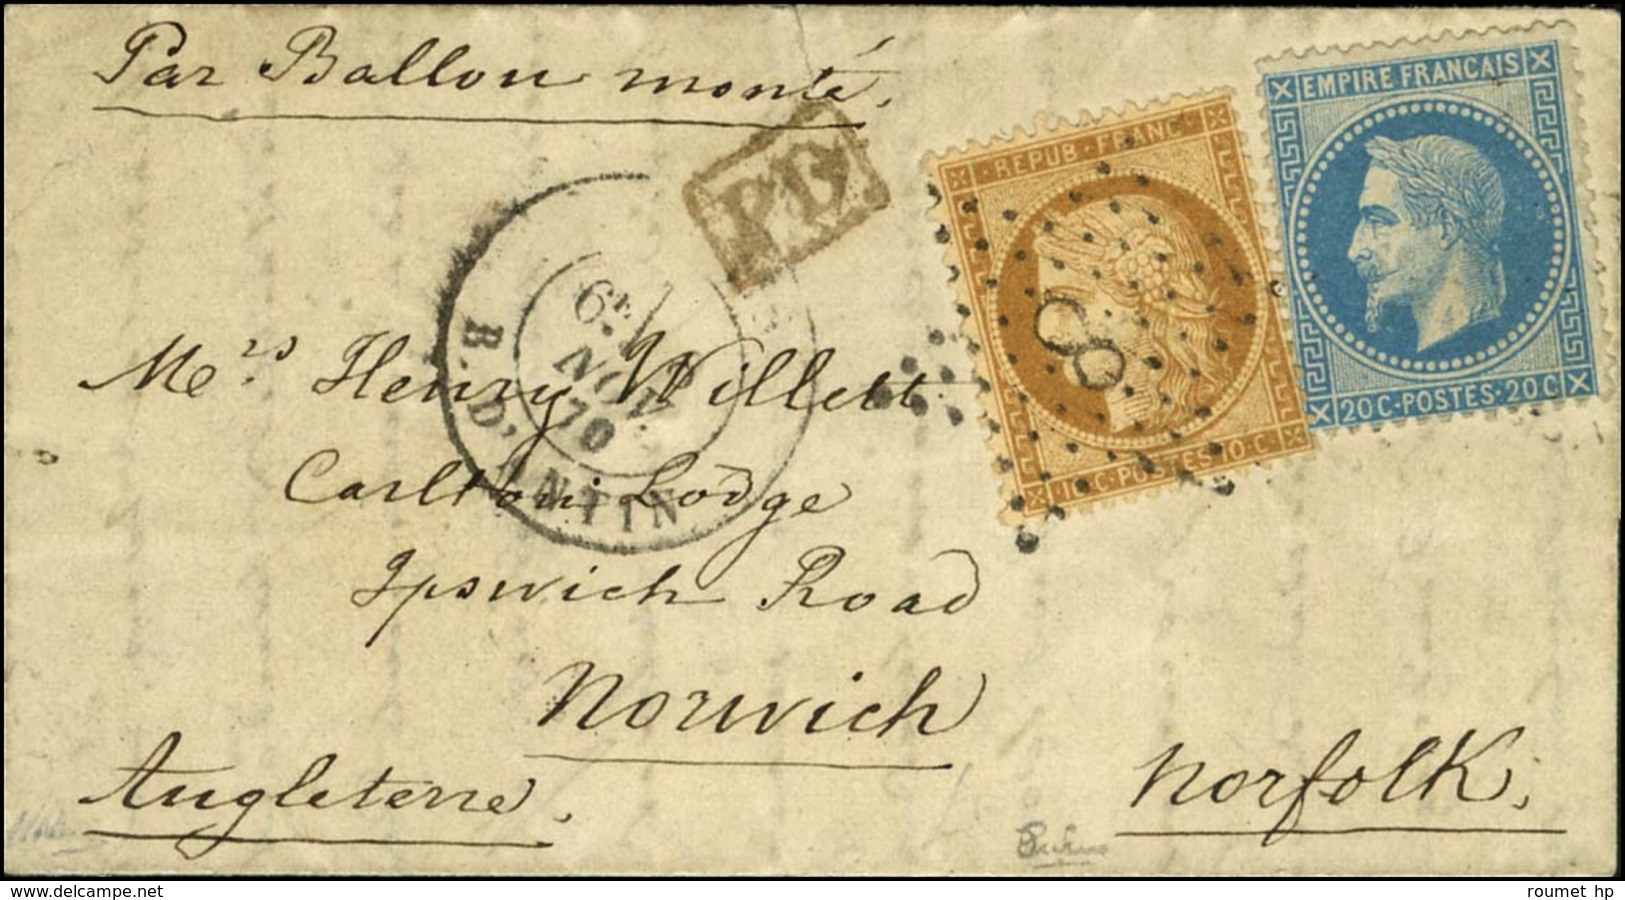 Par Ballon monté.
PD
EMPIRE FRANCAIS
20C·POSTES·20C
REPUB·FRANC
10·C·POSTES·10·C
8
6E
NOV.
70
B. D'ANTIN
Mrs. Henry Willett
Carlton Lodge
Ipswich Road
Norwich
Norfolk.
Angleterre.
delcampe.net
roumet hp